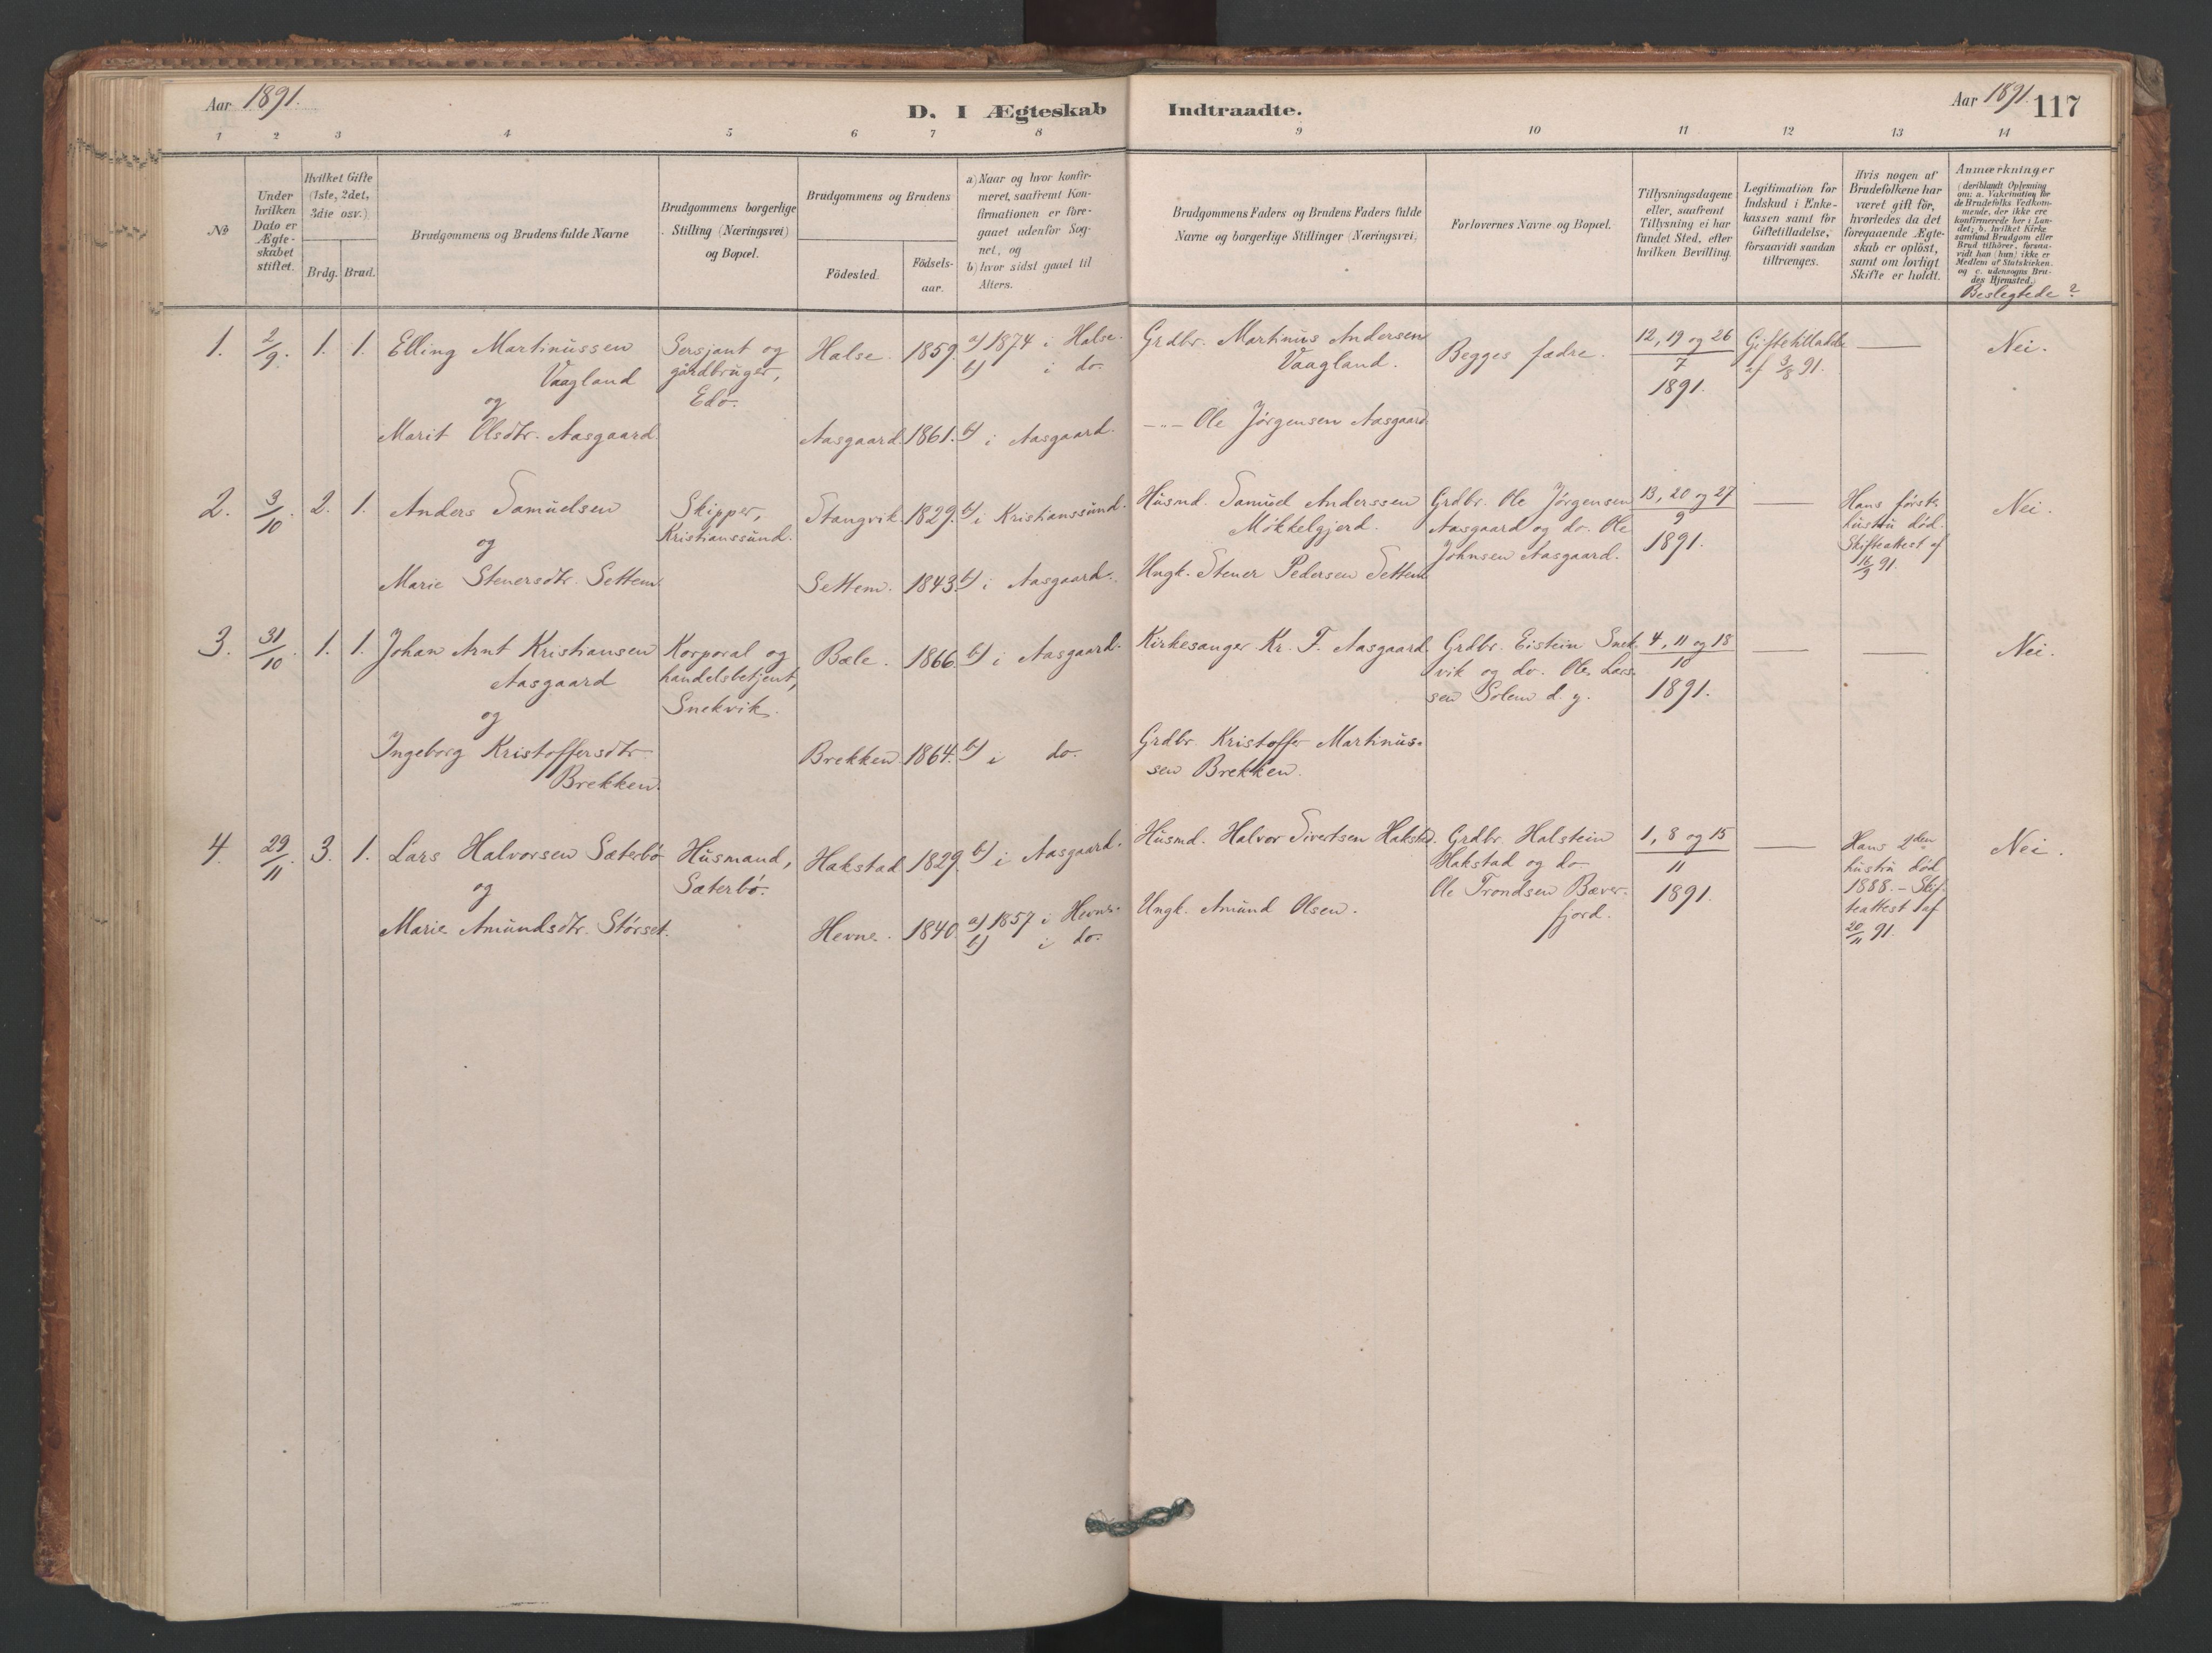 Aar 1891.
D. I Ægteskab Indtraadte.
Aar 1891. 117
1 2 3 4 5 6 7 8 9 10 11 12 13 14
No
Under hvilken Dato er Ægte-skabet stiftet.
Hvilket Gifte (1ste, 2det, 3die osv.)
Brdg. Brud.
Brudgommens og Brudens fulde Navne
Brudgommens borgerlige Stilling (Næringsvei) og Bopæl.
Brudgommens og Brudens
Födested.
Födsels-aar.
a) Naar og hvor konfir-
meret, saafremt Kon-
firmationen er fore-
gaaet udenfor Sog-
net, og
b) hvor sidst gaaet til
Alters.
Brudgommens Faders og Brudens Faders fulde
Navne og borgerlige Stillinger (Næringsvei)
Forlovernes Navne og Bopæl.
Tillysningsdagene
eller, saafremt
Tillysning ei har
fundet Sted, efter
hvilken Bevilling.
Legitimation for
Indskud i Enke-
kassen samt for
Giftetilladelse,
forsaavidt saadan
tiltrænges.
Hvis nogen af
Brudefolkene har
været gift för,
hvorledes da det
foregaaende Ægte-
skab er oplöst,
samt om lovligt
Skifte er holdt.
Anmærkninger
(deriblandt Oplysning
om: a. Vakcination for
de Brudefolks Vedkom-
mende, der ikke ere
konfirmerede her i Lan-
det; b. hvilket Kirke
samfund Brudgom eller
Brud tilhörer, forsaa-
vidt han (hun) ikke er
Medlem af Statskirken.
og c. udensogns Bru-
des Hjemsted.)
Beslegtede?
1. 2/9. 1. 1. Elling Martinussen
Vaagland
og
Marit Olsdtr. Aasgaard.
Sersjant og
gårdbruger,
Edö.
Halse. 1859. a) 1874 i Halse.
b) i do.
Aasgaard. 1861. b) i Aasgaard.
Grdbr. Martinus Andersen
Vaagland.
-"- Ole Jörgensen Aasgaard
Begges fædre.
12, 19 og 26
7
1891.
Giftetillatelse
af 3/8 91.
—
Nei.
2. 3/10. 2. 1. Anders Samuelsen
og
Marie Stenersdtr. Settem
Skipper,
Kristianssund.
Stangvik 1829. b) i Kristianssund.
Settem. 1843. b) i Aasgaard.
Husmd. Samuel Anderssen
Mökkelgjerd.
Ungk. Stener Pedersen Settem
Grdbr. Ole Jörgensen
Aasgaard og do. Ole
Johnsen Aasgaard.
13, 20 og 27
9
1891.
—
Hans förste
hustru död.
Skifteattest af
16/9 91.
Nei.
3. 31/10. 1. 1. Johan Arnt Kristiansen
Aasgaard
og
Ingeborg Kristoffersdtr.
Brekken.
Korporal og
handelsbetjent,
Snekvik.
Bæle. 1866. b) i Aasgaard.
Brekken. 1864. b) i do.
Kirkesanger Kr. F. Aasgaard.
Grdbr. Kristoffer Martinus-
sen Brekken.
Grdbr. Eistein Snek-
vik og do. Ole Lars-
sen Solem d. y.
4, 11 og 18
10
1891.
—
—
Nei.
4. 29/11. 3. 1. Lars Halvorsen Sæterbö
og
Marie Amundsdtr. Störset.
Husmand,
Sæterbö.
Hakstad 1829. b) i Aasgaard.
Hevne. 1840. a) 1857 i Hevne.
b) i do.
Husmd. Halvor Sivertsen Hakstad.
Ungk. Amund Olsen.
Grdbr. Halstein
Hakstad og do
Ole Trondsen Bæver-
fjord.
1, 8 og 15
11
1891.
—
Hans 2den
hustru död
1888. - Skif-
teattest af
20/11 91.
Nei.